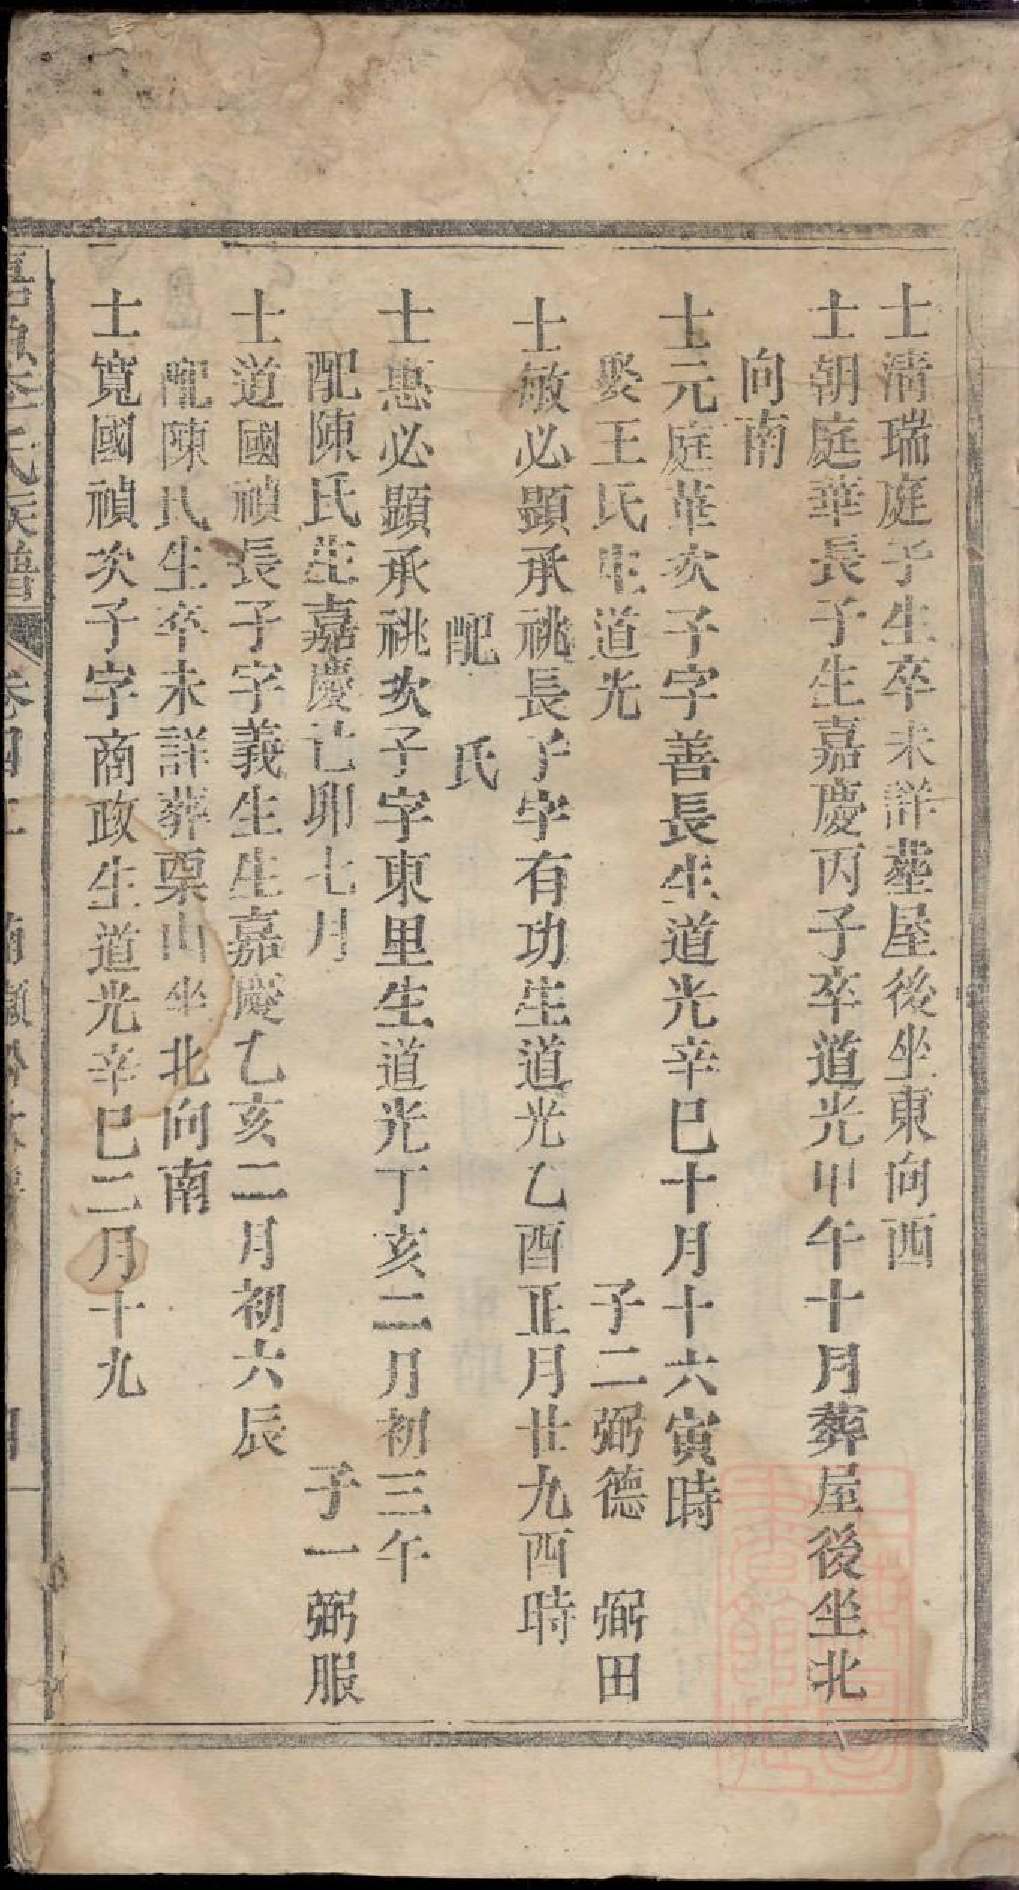 士清瑞庭子生卒未詳塟屋後坐東向西
士朝庭華長子生嘉慶丙子卒道光甲午十月葬屋後坐北
向南
士元庭華次子字善長生道光辛巳十月十六寅時
娶王氏生道光 子二弼德 弼田
士敏必顯承祧長子字有功生道光乙酉正月廿九酉時
配 氏
士惠必顯承祧次子字東里生道光丁亥二月初三午
配陳氏生嘉慶己卯七月 子一弼服
士道國禎長子字義生生嘉慶乙亥二月初六辰
配陳氏生卒未詳葬栗山坐北向南
士寬國禎次子字商政生道光辛巳二月十九
氏族譜 卷四上